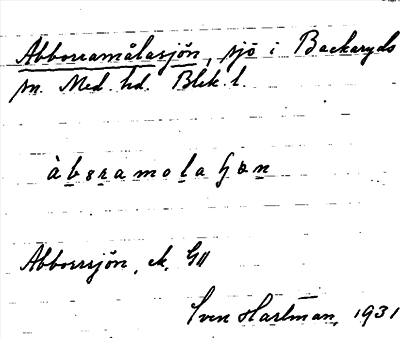 Abborramålasjön, sjö i Backaryds
sn. Med. hd. Blek. l.
àbɷramolaɧøn
Abborrsjön, ek. G11
Sven Hartman, 1931